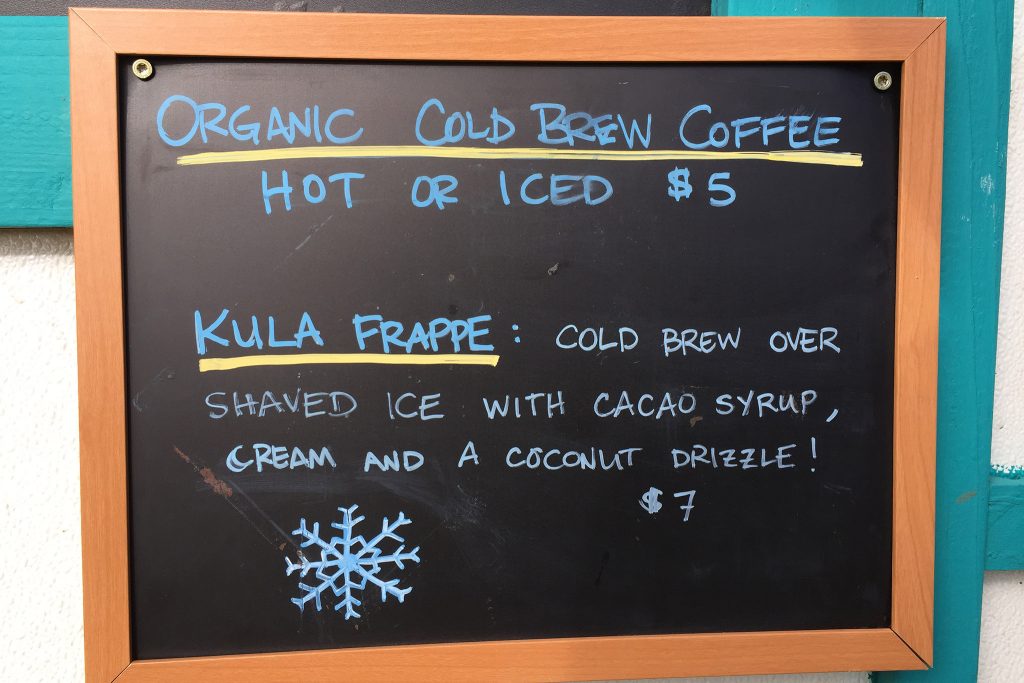 ORGANIC COLD BREW COFFEE
HOT OR ICED $5
KULA FRAPPE: COLD BREW OVER
SHAVED ICE WITH CACAO SYRUP,
CREAM AND A COCONUT DRIZZLE!
$7